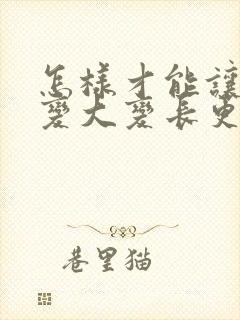 怎樣才能讓
變大變長更
巷里猫